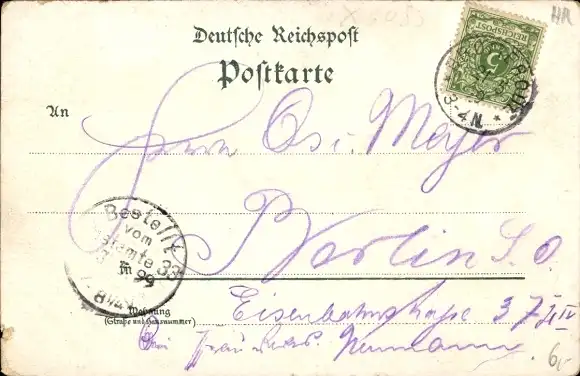 Deutsche Reichspost
Postkarte
REICHSPOST
5
3-4N.
An
Herrn Osc. Meyer
Berlin S.O.
Bestellt
vom
Postamte 33
99
8 1/4
Wohnung
(Straße und Hausnummer)
Eisenbahnstraße 37 IV
bei Frau Neumann.
HR